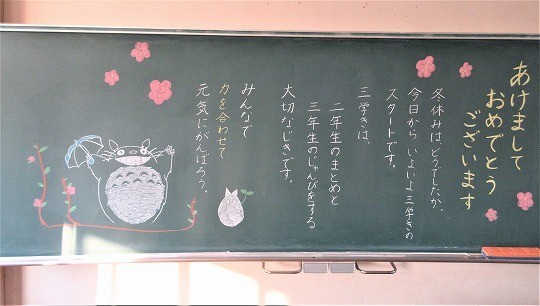 あけまして
おめでとう
ございます
冬休みはどうでしたか。
今日から いよいよ三学きの
スタートです。
三学きは、
二年生のまとめと
三年生のじゅんびをする
大切なじきです。
みんなで
力を合わせて
元気にがんばろう。